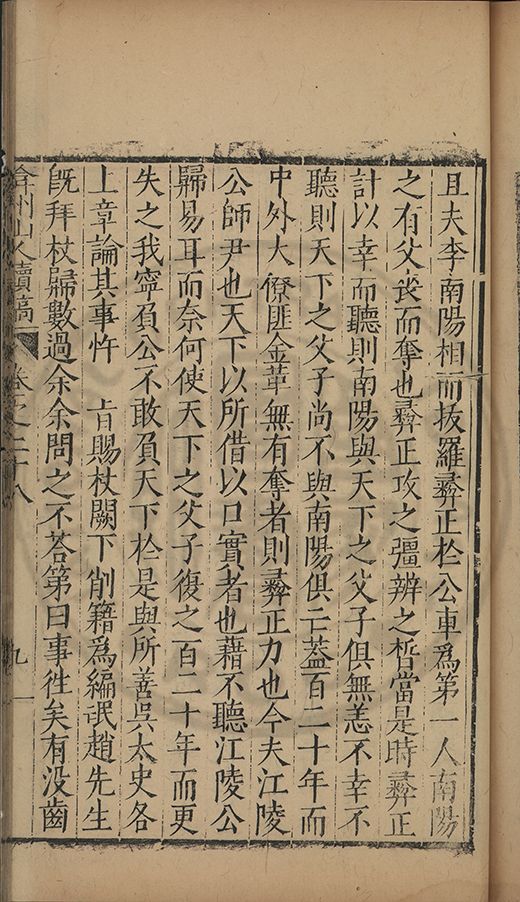 且夫李南陽相而拔羅彞正於公車爲第一人南陽
之有父丧而奪也彞正攻之彊辨之晢當是時彞正
計以幸而聽則南陽與天下之父子俱無恙不幸不
聽則天下之父子尚不與南陽俱亡葢百二十年而
中外大僚匪金革無有奪者則彞正力也今夫江陵
公師尹也天下以所借以口實者也藉不聽江陵公
歸易耳而奈何使天下之父子復之百二十年而更
失之我寧負公不敢負天下於是與所善吳太史各
上章論其事忤 旨賜杖闕下削籍爲編氓趙先生
旣拜杖歸數過余余問之不荅第曰事徃矣有没齒
弇州山人續稿 卷之二十八 九